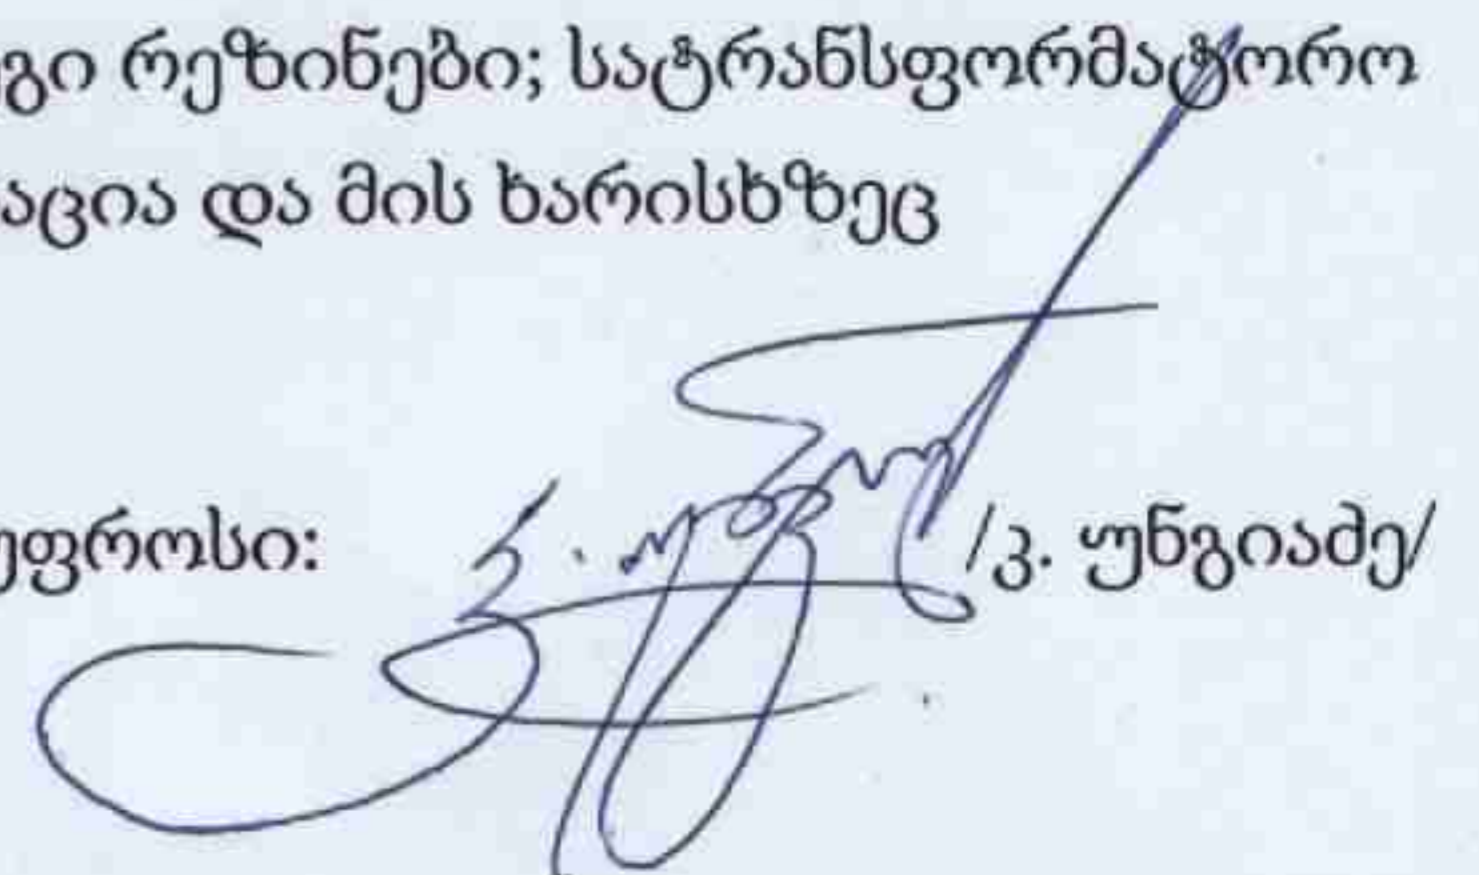 გი რეზინები; სატრანსფორმატორო
აცია და მის ხარისხზეც
უფროსი: /კ. უნგიაძე/